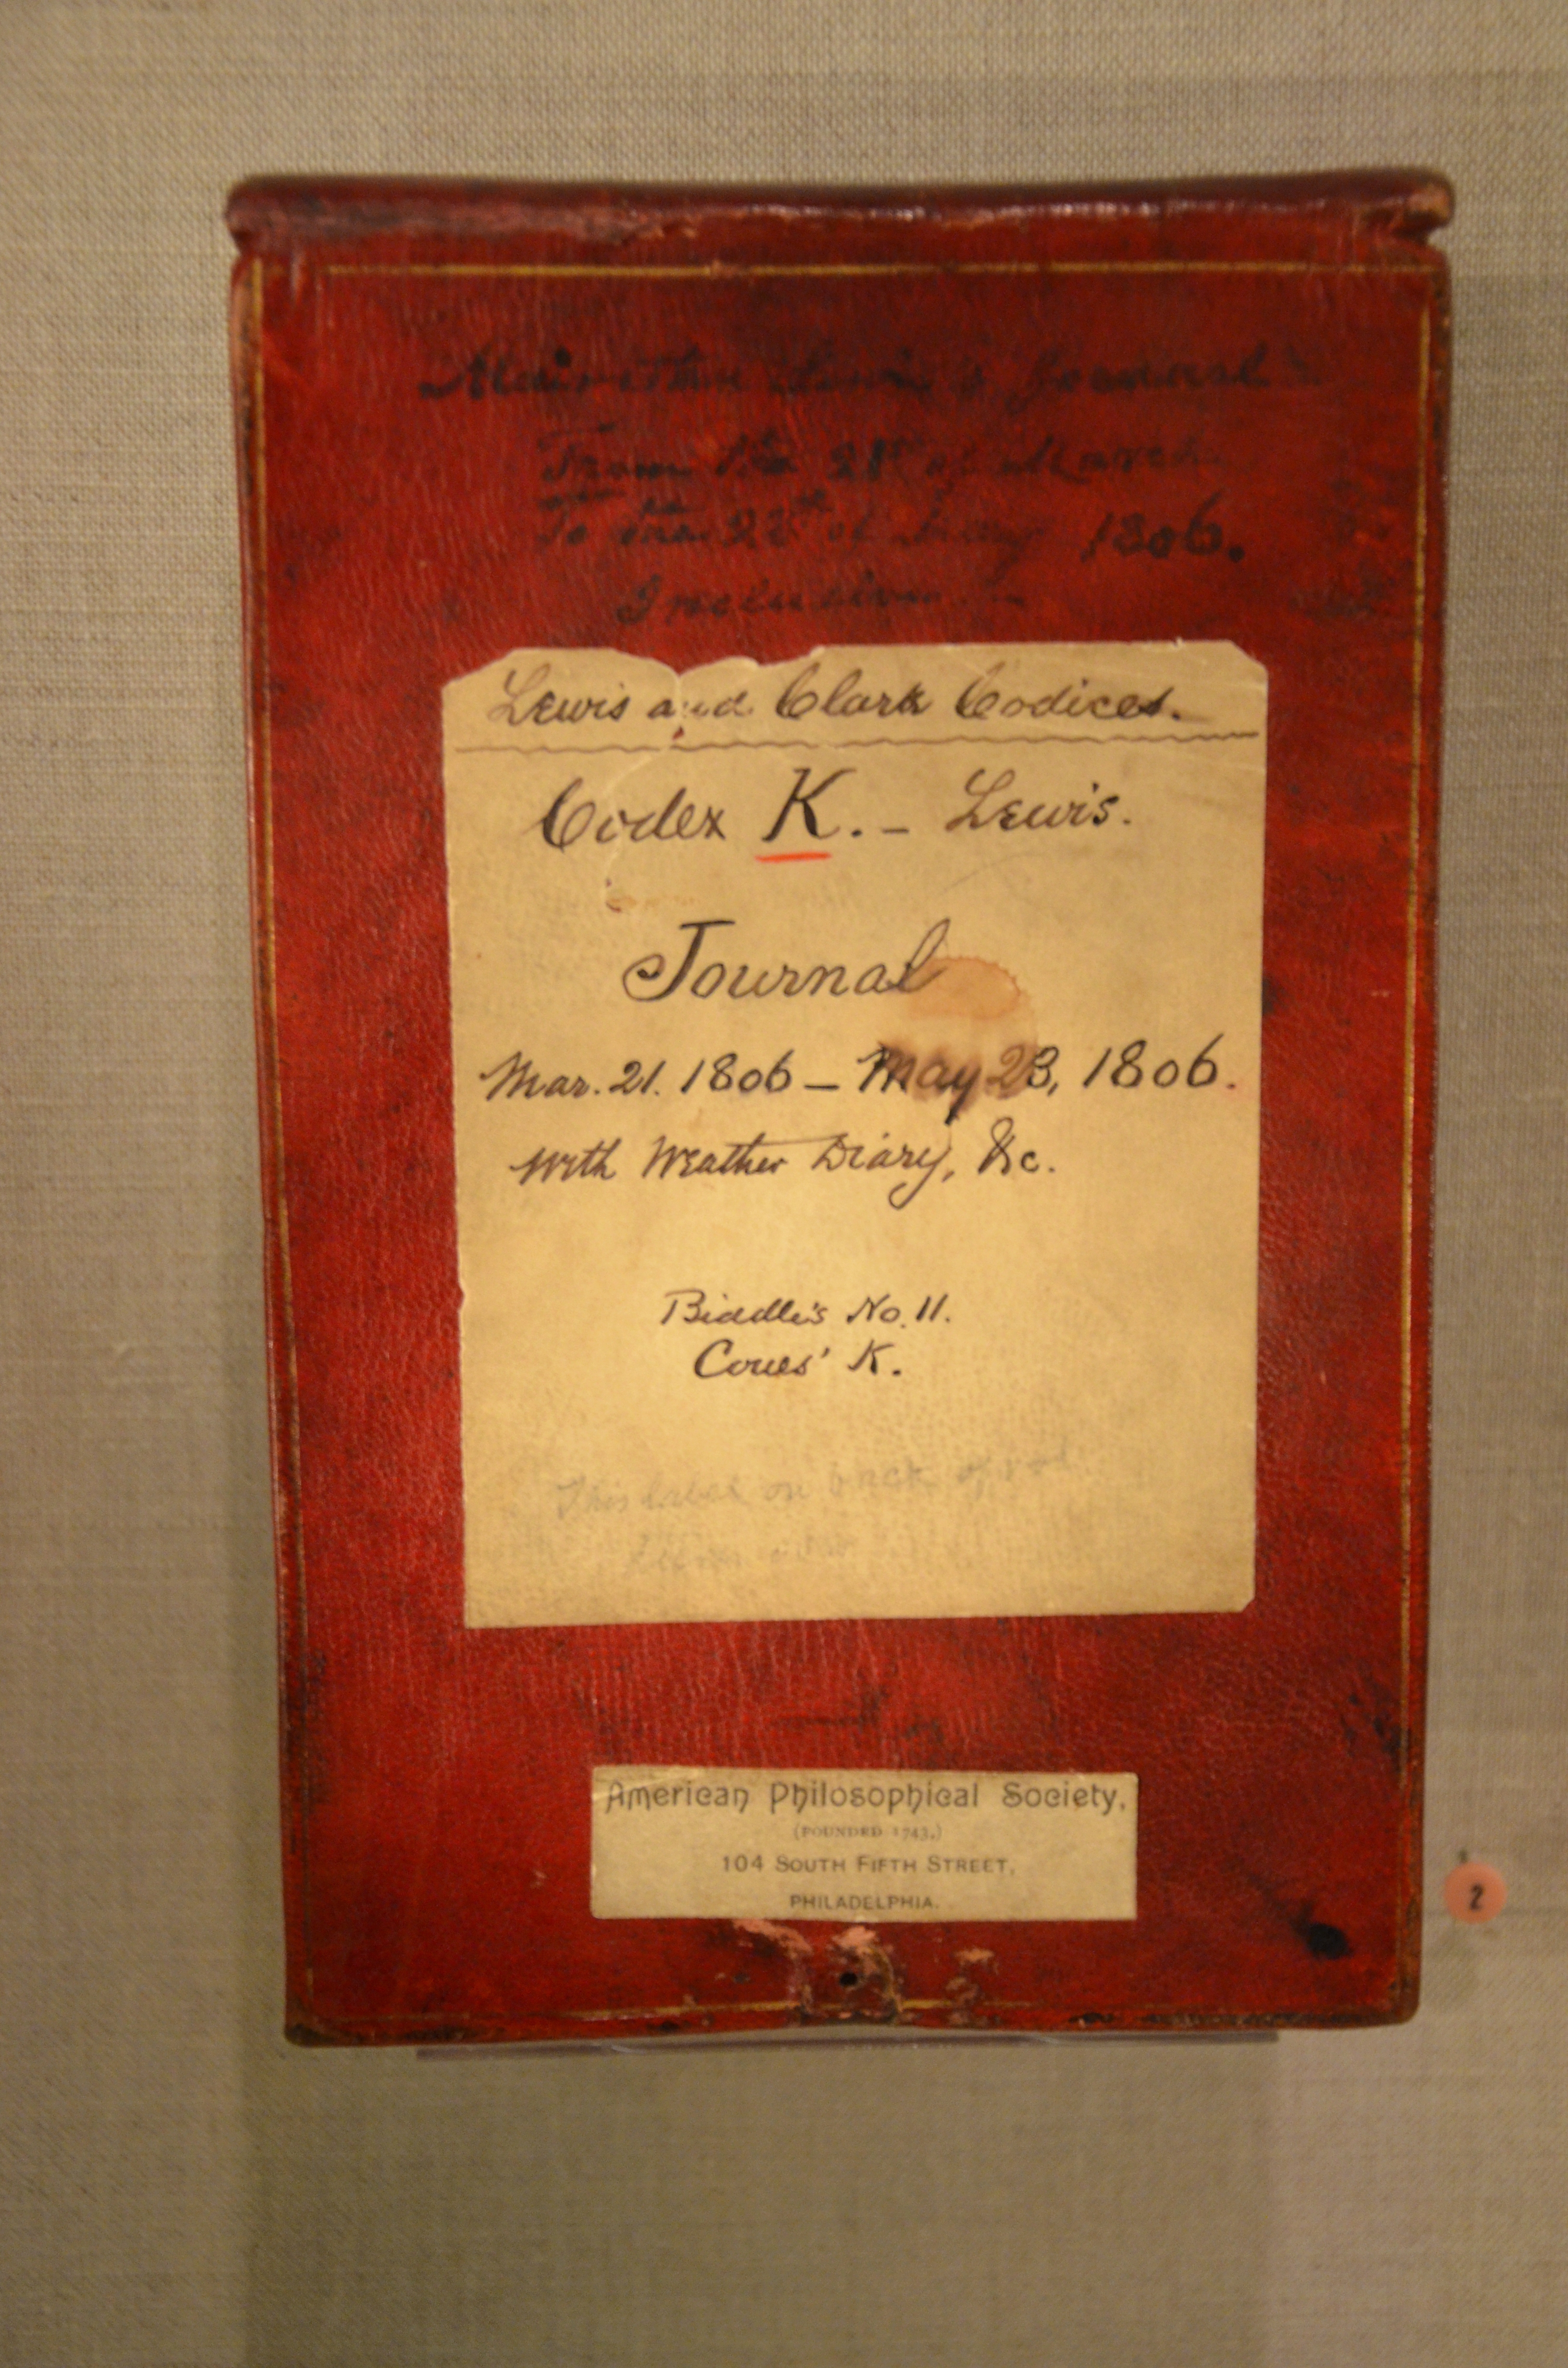 Lewis's Journal
From the 21st of March
To the 23d of May 1806.
Inclusive
Lewis and Clark Codices.
Codex K. – Lewis.
Journal
Mar. 21. 1806 – May 23, 1806.
With Weather Diary, &c.
Biddle's No. 11.
Coues' K.
This label on back of
American Philosophical Society,
(FOUNDED 1743.)
104 SOUTH FIFTH STREET,
PHILADELPHIA.
2